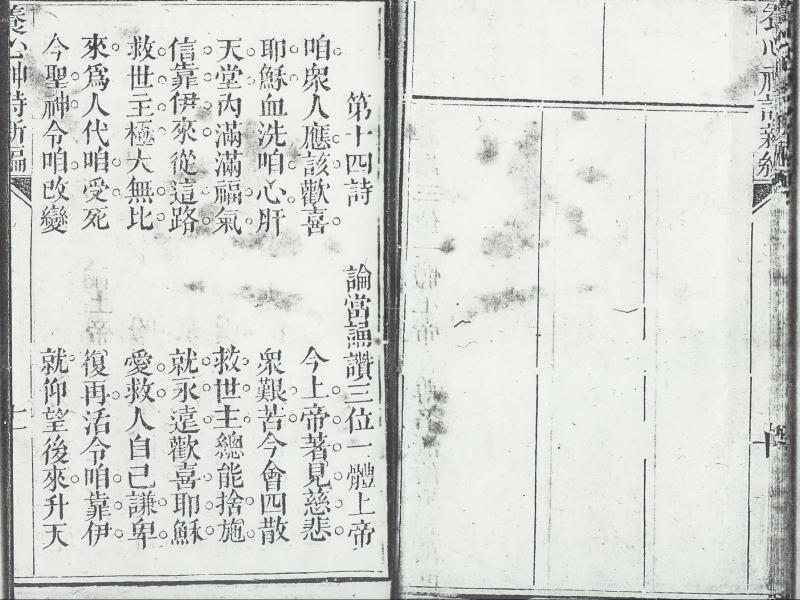 養心神詩新編
十
第十四詩 論當誦讚三位一體上帝
咱衆人應該歡喜 今上帝著見慈悲
耶穌血洗咱心肝 衆艱苦今會四散
天堂內滿滿福氣 救世主總能捨施
信靠伊來從這路 就永遠歡喜耶穌
救世主極大無比 愛救人自己謙卑
來爲人代咱受死 復再活令咱靠伊
今聖神令咱改變 就仰望後來升天
養心神詩新編
十一